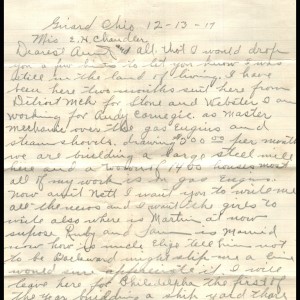 Girard Ohio 12-13-17
Mrs E.H. Chandler,
Dearest Aunt and all. that I would drop
you a few lines to let you know I was
still in the land of living. I have
been here two months sent here from
Detroit Mch for Stone and Webster I am
working for Andy Carnegie. as master
mechanic over the gas Engins and
steam shovels. drawing 200.00 per month
we are building a large steel mill
here and a 1460 houses most
all of my work is on gas Engins.
now Aunt Noll I want you to write me
all the news and I want the girls to
write also where is Martin at now
supose Ruby and is Maried
now how is uncle tell him not
to be Backward might ship me a line
would sure appreciate it I will
leave here for Philadelphia the first of
the year building a ship yard that